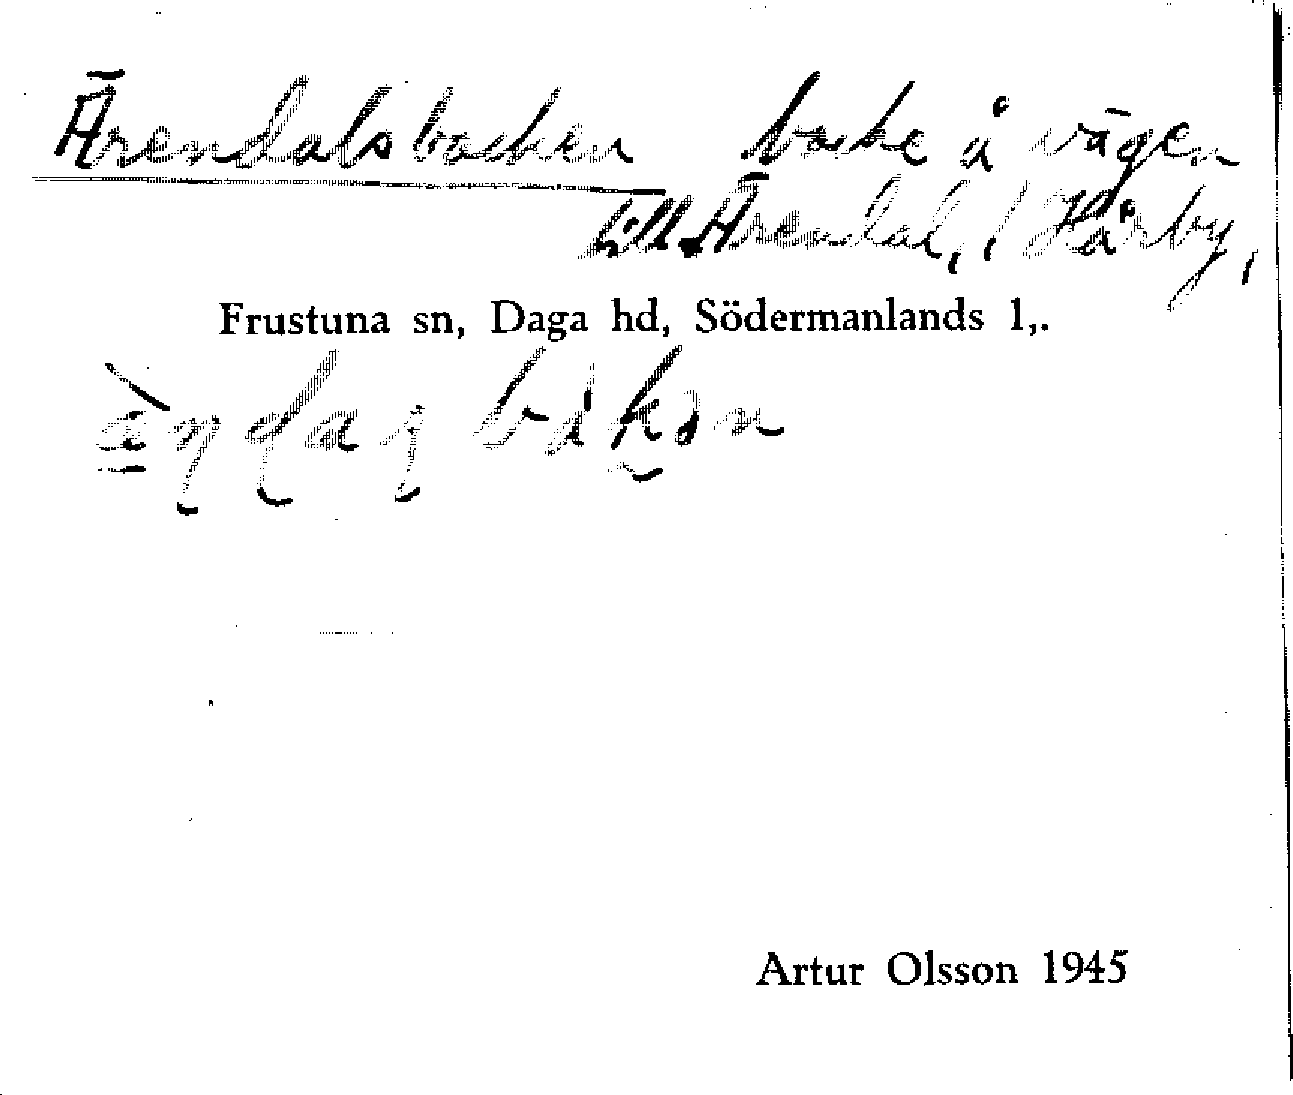 Ärendalsbacken backe å vägen
till Ärendal, / Hårby,
Frustuna sn, Daga hd, Södermanlands l,.
Artur Olsson 1945